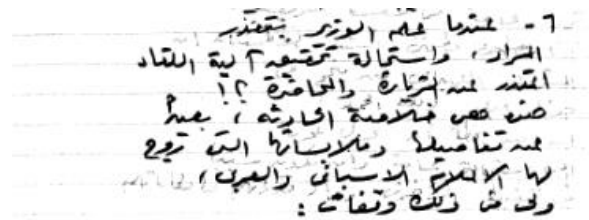 ٦- عندما علم الوزير بتعذر
المراد، واستحالة تحقيق آلية اللقاء
اعتذر عن الزيارة والمحاضرة ؟!
هذه هي خلاصة الحادثة، بعيداً
عن تفاصيلها وملابساتها التي تروج
لها الإعلام الاسباني والعربي،
ولي في ذلك وقفات :